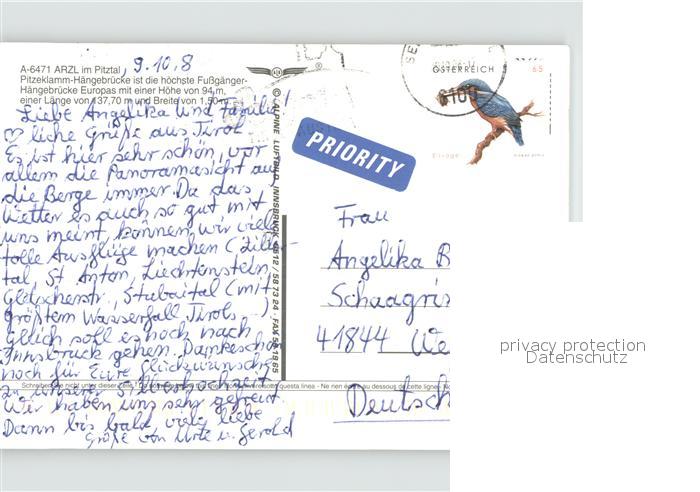 A-6471 ARZL im Pitztal, 9.10.8
Pitzeklamm-Hängebrücke ist die höchste Fußgänger-
Hängebrücke Europas mit einer Höhe von 94 m,
einer Länge von 137,70 m und Breite von 1,50 m.
Liebe Angelika und Familie!
♡liche Grüße aus Tirol
Es ist hier sehr schön, vor
allem die Panoramasicht auf
die Berge immer. Da das
Wetter es auch so gut mit
uns meint können wir viele
tolle Ausflüge machen (Ziller-
tal, St. Anton, Liechtenstein,
Gletscherstr., Stubaital (mit
größtem Wasserfall Tirols).
Gleich soll es noch nach
Innsbruck gehen. Dankeschön
noch für Eure Glückwünsche
zu unserer Silberhochzeit
Wir haben uns sehr gefreut.
Dann bis bald, viele liebe
Grüße von Ute u. Gerold
© ALPINE LUFTBILD, INNSBRUCK 0512 / 58 73 24 · FAX 58 18 65
PRIORITY
ÖSTERREICH
65
6100
Eisvogel
Frau
Angelika B
Schaagris
41844 We
Deutsch
privacy protection
Datenschutz